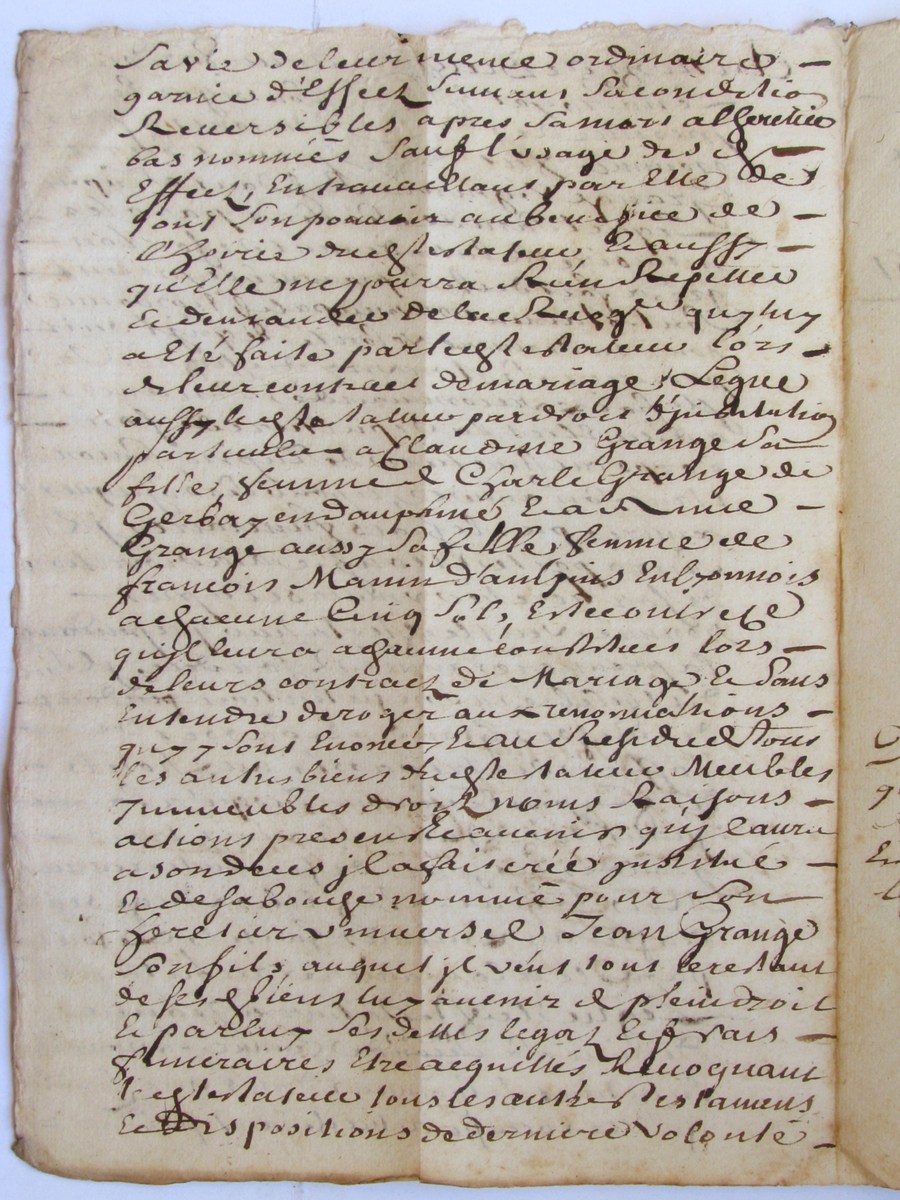 sa vie de leur mence ordinaire
garnie d'Effect suivant sa condition
Reversibles apres sa mort a lheretier
bas nommés sauf l'usage des d.
Effect, En travaillant par Elle de
tout son pouvoir au benefice de
l'hoirie dud testateur, Et aussy
qu'Elle ne pourra Rien Repetter
Et demander de la quy luy
a Eté faite par led testateur lors
de leur contract de mariage, Legue
aussy led testateur par droit d'jnstitution
particuliere a Claudine Grange sa
fille, femme de Charle Grange de
Gerbay en dauphiné Et a
Grange aussy sa fille femme de
francois Manin d'aulpins En lyonnois
a chacune Cinq sols, Et ce
quyl leur a a chacune constitués lors
de leurs contract de Mariage Et sans
Entendre deroger aux renonciations
quy y sont Enoncé, Et au Residu de tous
les autres biens dud testateur Meubles
Jmmeubles droit noms Raisons
actions present Et avenir quyl aura
a son deces jl a fait créé jnstitué
Et de sa bouche nommé pour son
heretier universel Jean Grange
son fils, auquel jl veut tout le restant
de ses d biens luy avenir de plein droit
Et par luy ses dettes legat Et frais
funeraires Etre acquittés Revoquant
led testateur tous les autres testamens
Et Dispositions de derniere volonté